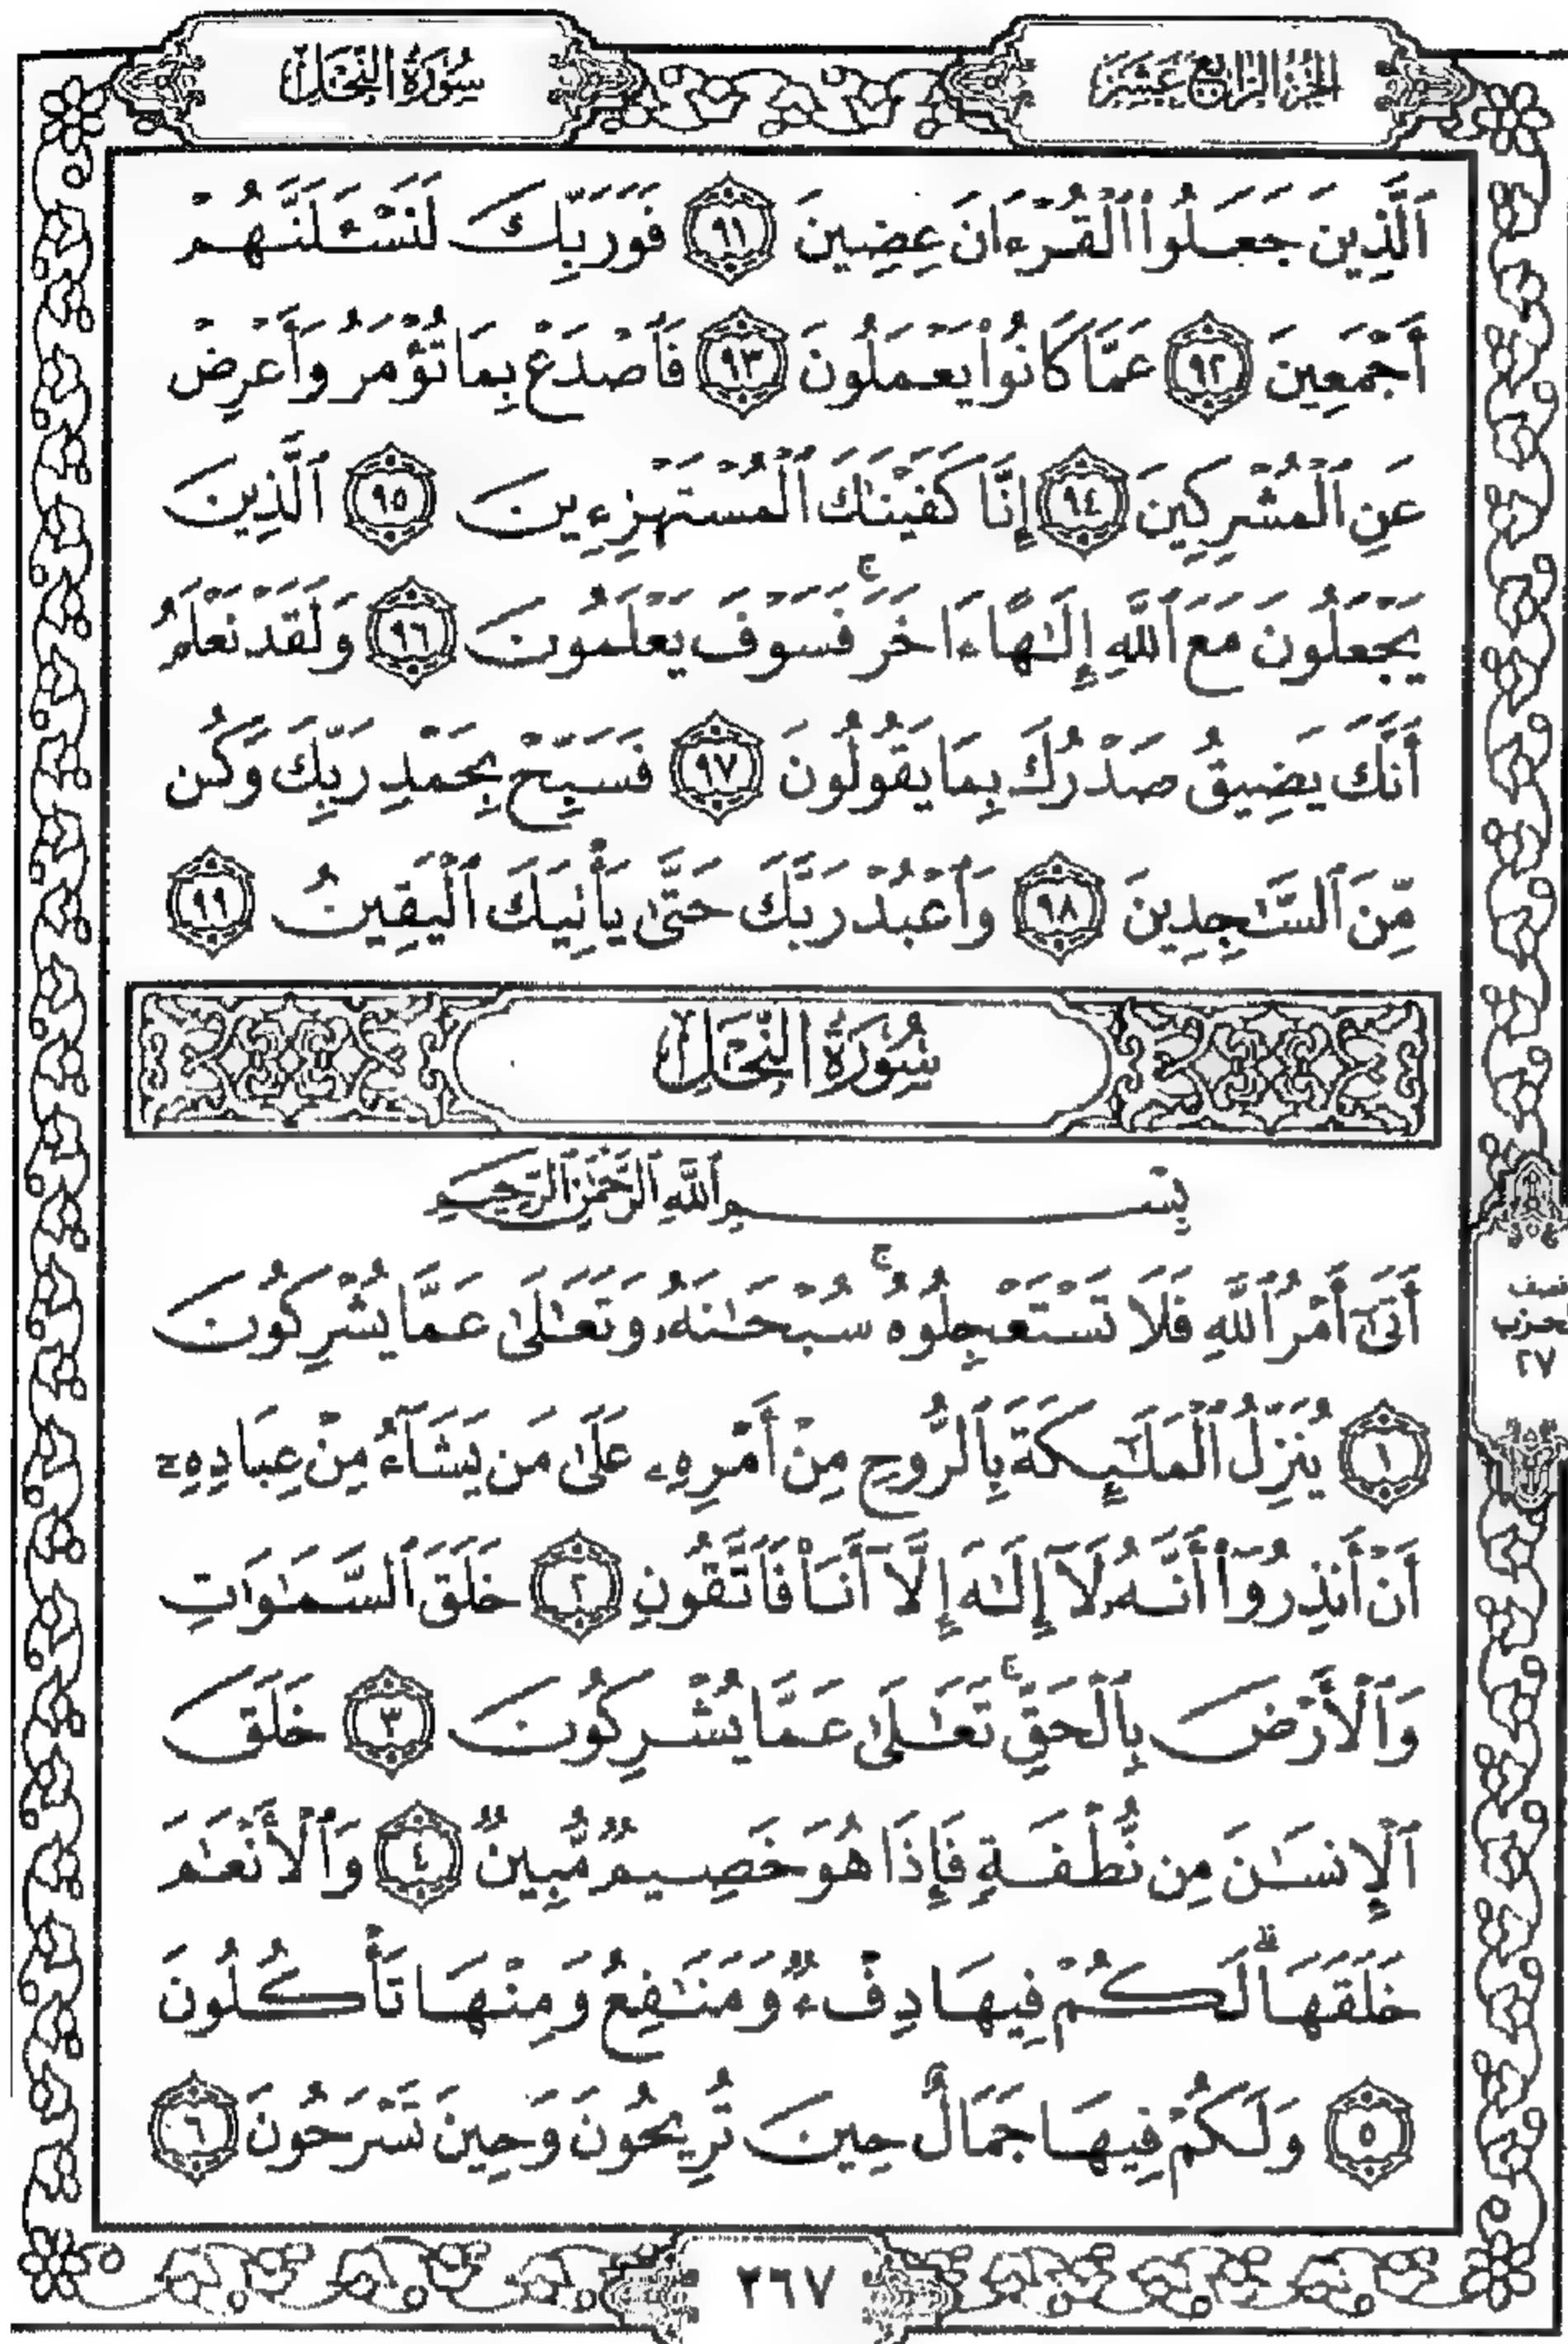 الجزء الرابع عشر
سورة النحل
ٱلَّذِينَ جَعَلُوا۟ ٱلْقُرْءَانَ عِضِينَ ٩١ فَوَرَبِّكَ لَنَسْـَٔلَنَّهُمْ
أَجْمَعِينَ ٩٢ عَمَّا كَانُوا۟ يَعْمَلُونَ ٩٣ فَٱصْدَعْ بِمَا تُؤْمَرُ وَأَعْرِضْ
عَنِ ٱلْمُشْرِكِينَ ٩٤ إِنَّا كَفَيْنَـٰكَ ٱلْمُسْتَهْزِءِينَ ٩٥ ٱلَّذِينَ
يَجْعَلُونَ مَعَ ٱللَّهِ إِلَـٰهًا ءَاخَرَ ۚ فَسَوْفَ يَعْلَمُونَ ٩٦ وَلَقَدْ نَعْلَمُ
أَنَّكَ يَضِيقُ صَدْرُكَ بِمَا يَقُولُونَ ٩٧ فَسَبِّحْ بِحَمْدِ رَبِّكَ وَكُن
مِّنَ ٱلسَّـٰجِدِينَ ٩٨ وَٱعْبُدْ رَبَّكَ حَتَّىٰ يَأْتِيَكَ ٱلْيَقِينُ ٩٩
سُورَةُ النَّحْلِ
بِسْمِ ٱللَّهِ ٱلرَّحْمَـٰنِ ٱلرَّحِيمِ
أَتَىٰٓ أَمْرُ ٱللَّهِ فَلَا تَسْتَعْجِلُوهُ ۚ سُبْحَـٰنَهُۥ وَتَعَـٰلَىٰ عَمَّا يُشْرِكُونَ
١ يُنَزِّلُ ٱلْمَلَـٰٓئِكَةَ بِٱلرُّوحِ مِنْ أَمْرِهِۦ عَلَىٰ مَن يَشَآءُ مِنْ عِبَادِهِۦٓ
أَنْ أَنذِرُوٓا۟ أَنَّهُۥ لَآ إِلَـٰهَ إِلَّآ أَنَا۠ فَٱتَّقُونِ ٢ خَلَقَ ٱلسَّمَـٰوَٰتِ
وَٱلْأَرْضَ بِٱلْحَقِّ ۚ تَعَـٰلَىٰ عَمَّا يُشْرِكُونَ ٣ خَلَقَ
ٱلْإِنسَـٰنَ مِن نُّطْفَةٍ فَإِذَا هُوَ خَصِيمٌ مُّبِينٌ ٤ وَٱلْأَنْعَـٰمَ
خَلَقَهَا ۗ لَكُمْ فِيهَا دِفْءٌ وَمَنَـٰفِعُ وَمِنْهَا تَأْكُلُونَ
٥ وَلَكُمْ فِيهَا جَمَالٌ حِينَ تُرِيحُونَ وَحِينَ تَسْرَحُونَ ٦
٢٦٧